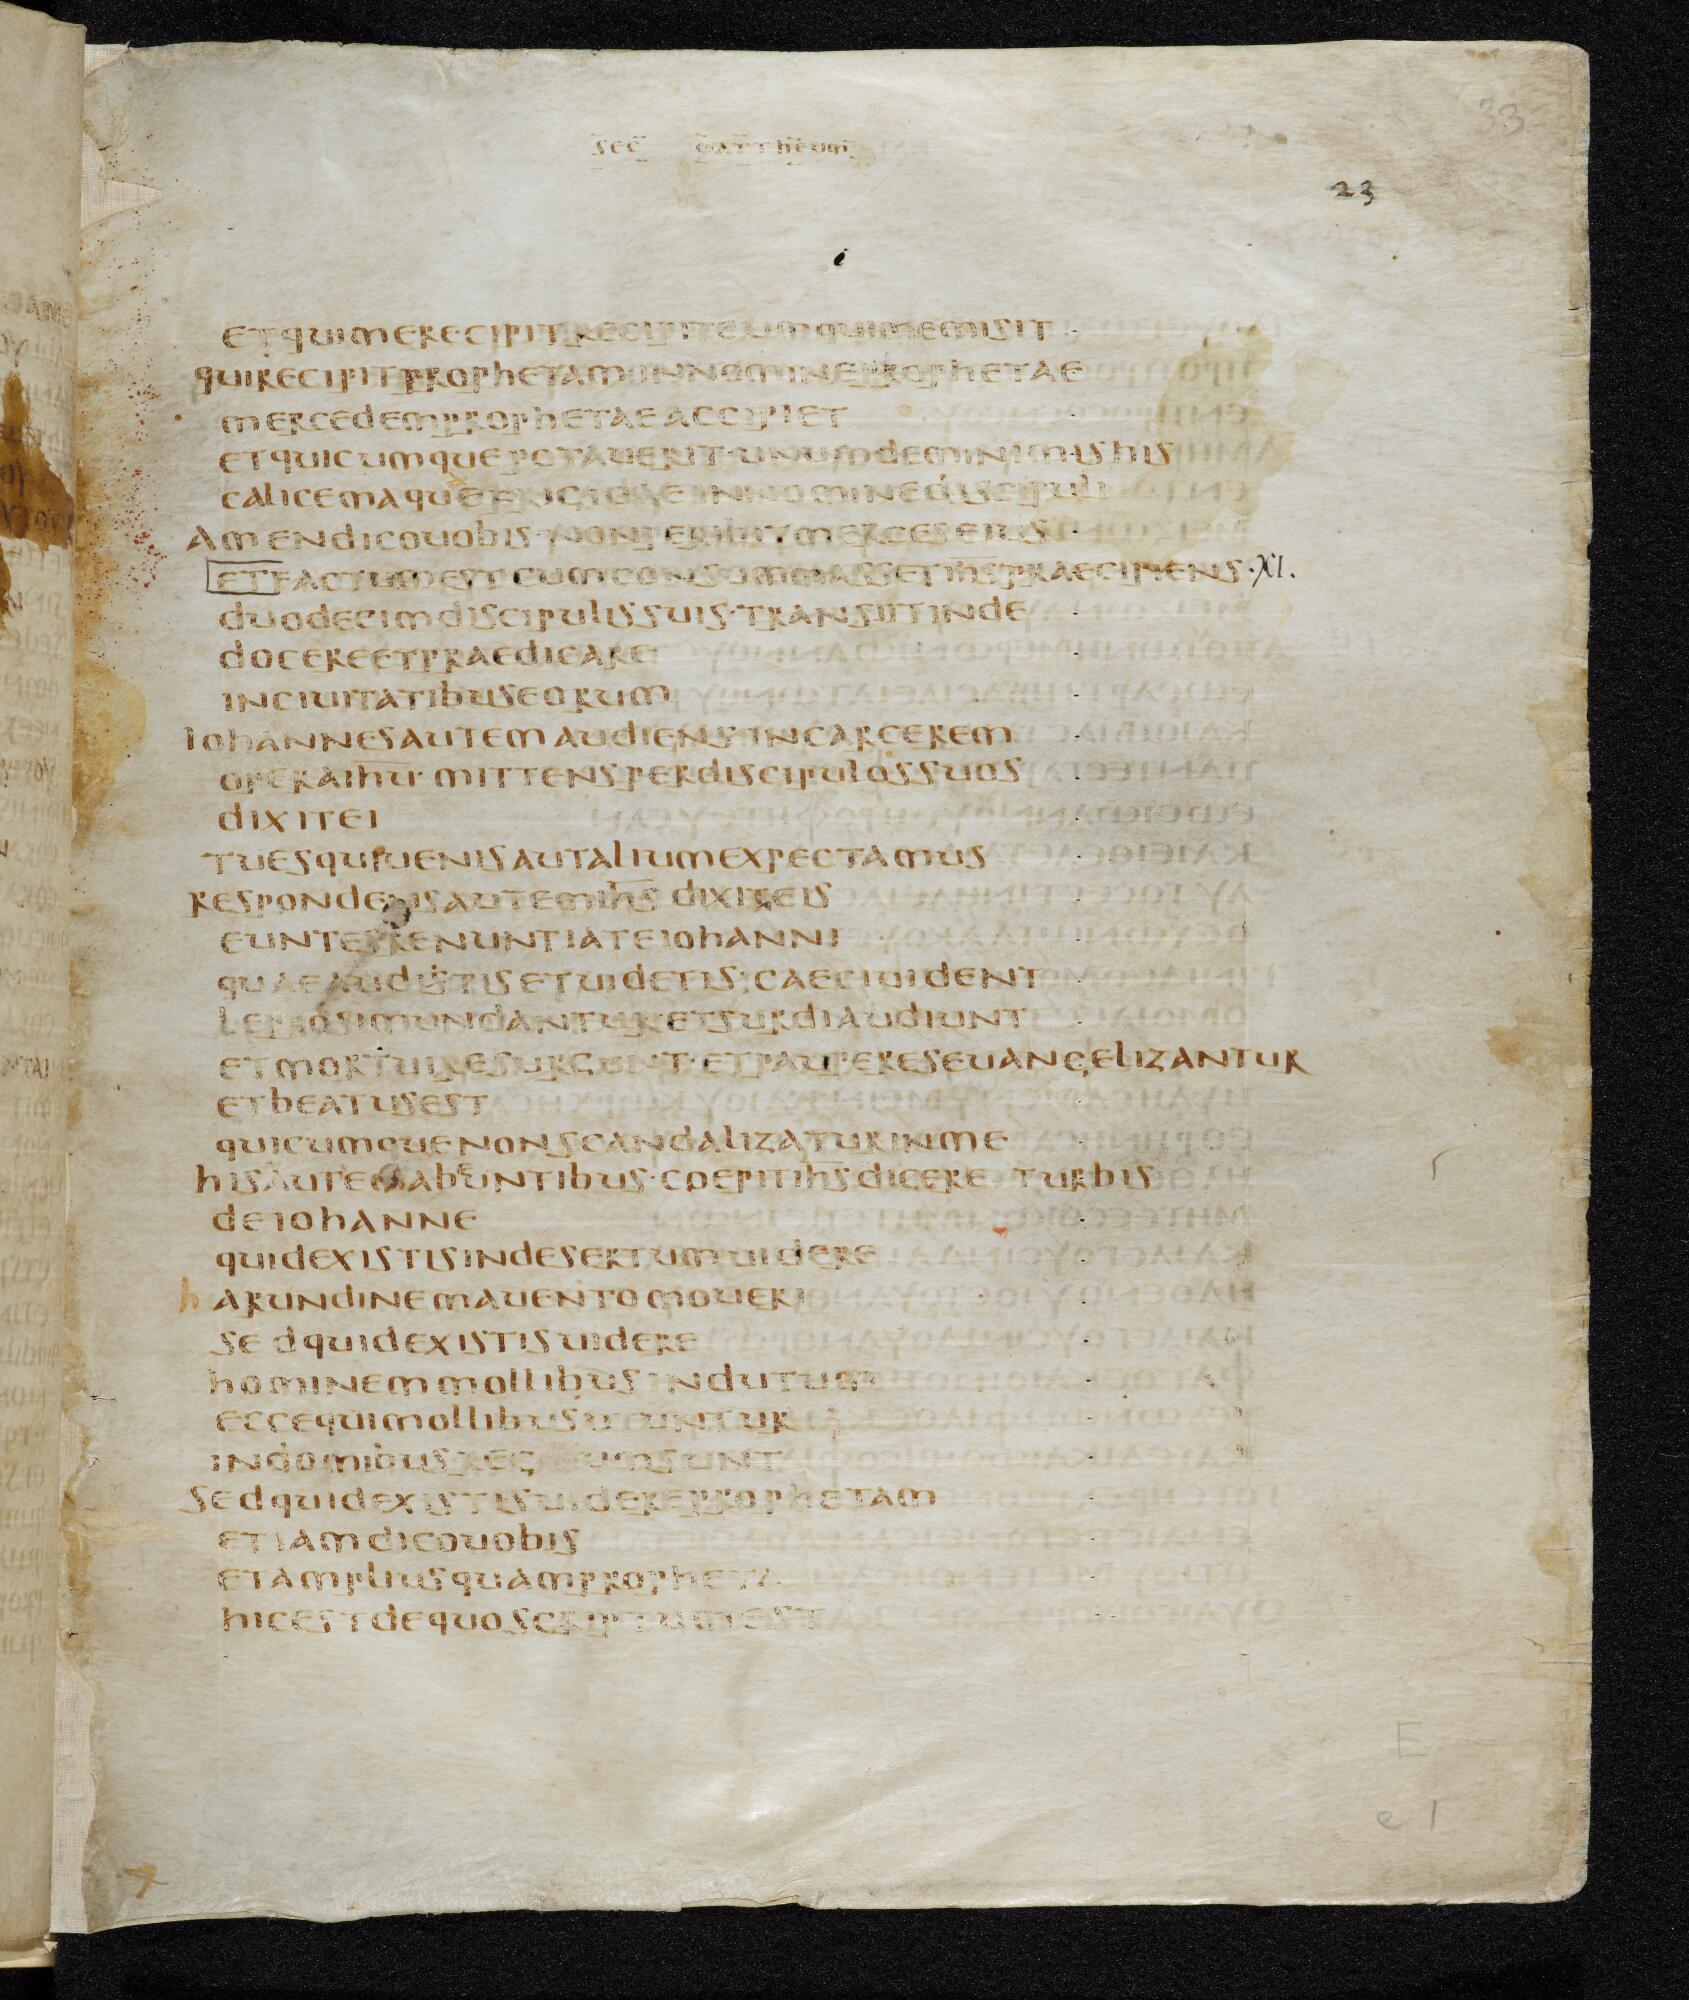 33
sec mattheum
23
i
et qui me recipit recipit eum qui me misit
qui recipit prophetam in nomine prophetae
mercedem prophetae accipiet
et quicumque potauerit unum de minimis his
calicem aquae in nomine discipuli
Amen dico uobis non peribit merces eius
et factum est cum consummasset ihs praecipiens · XI.
duodecim discipulis suis · transiit inde
docere et praedicare
in ciuitatibus eorum
Iohannes autem audiens in carcerem
opera ihu · mittens per discipulos suos
dixit ei
tu es qui uenis aut alium expectamus
respondens autem ihs dixit eis
euntes renuntiate iohanni
quae audistis et uidetis · caeci uident
leprosi mundantur · et surdi audiunt
et mortui resurgunt · et pauperes euangelizantur
et beatus est
quicumque non scandalizatur in me
his autem abeuntibus · coepit ihs dicere turbis
de iohanne
quid existis in desertum uidere
h arundinem a uento moueri
sed quid existis uidere
hominem mollibus indutum
ecce qui mollibus utuntur
in domibus reg um sunt
Sed quid existis uidere prophetam
etiam dico uobis
et amplius quam propheta
hic est de quo scriptum est
E
e 1